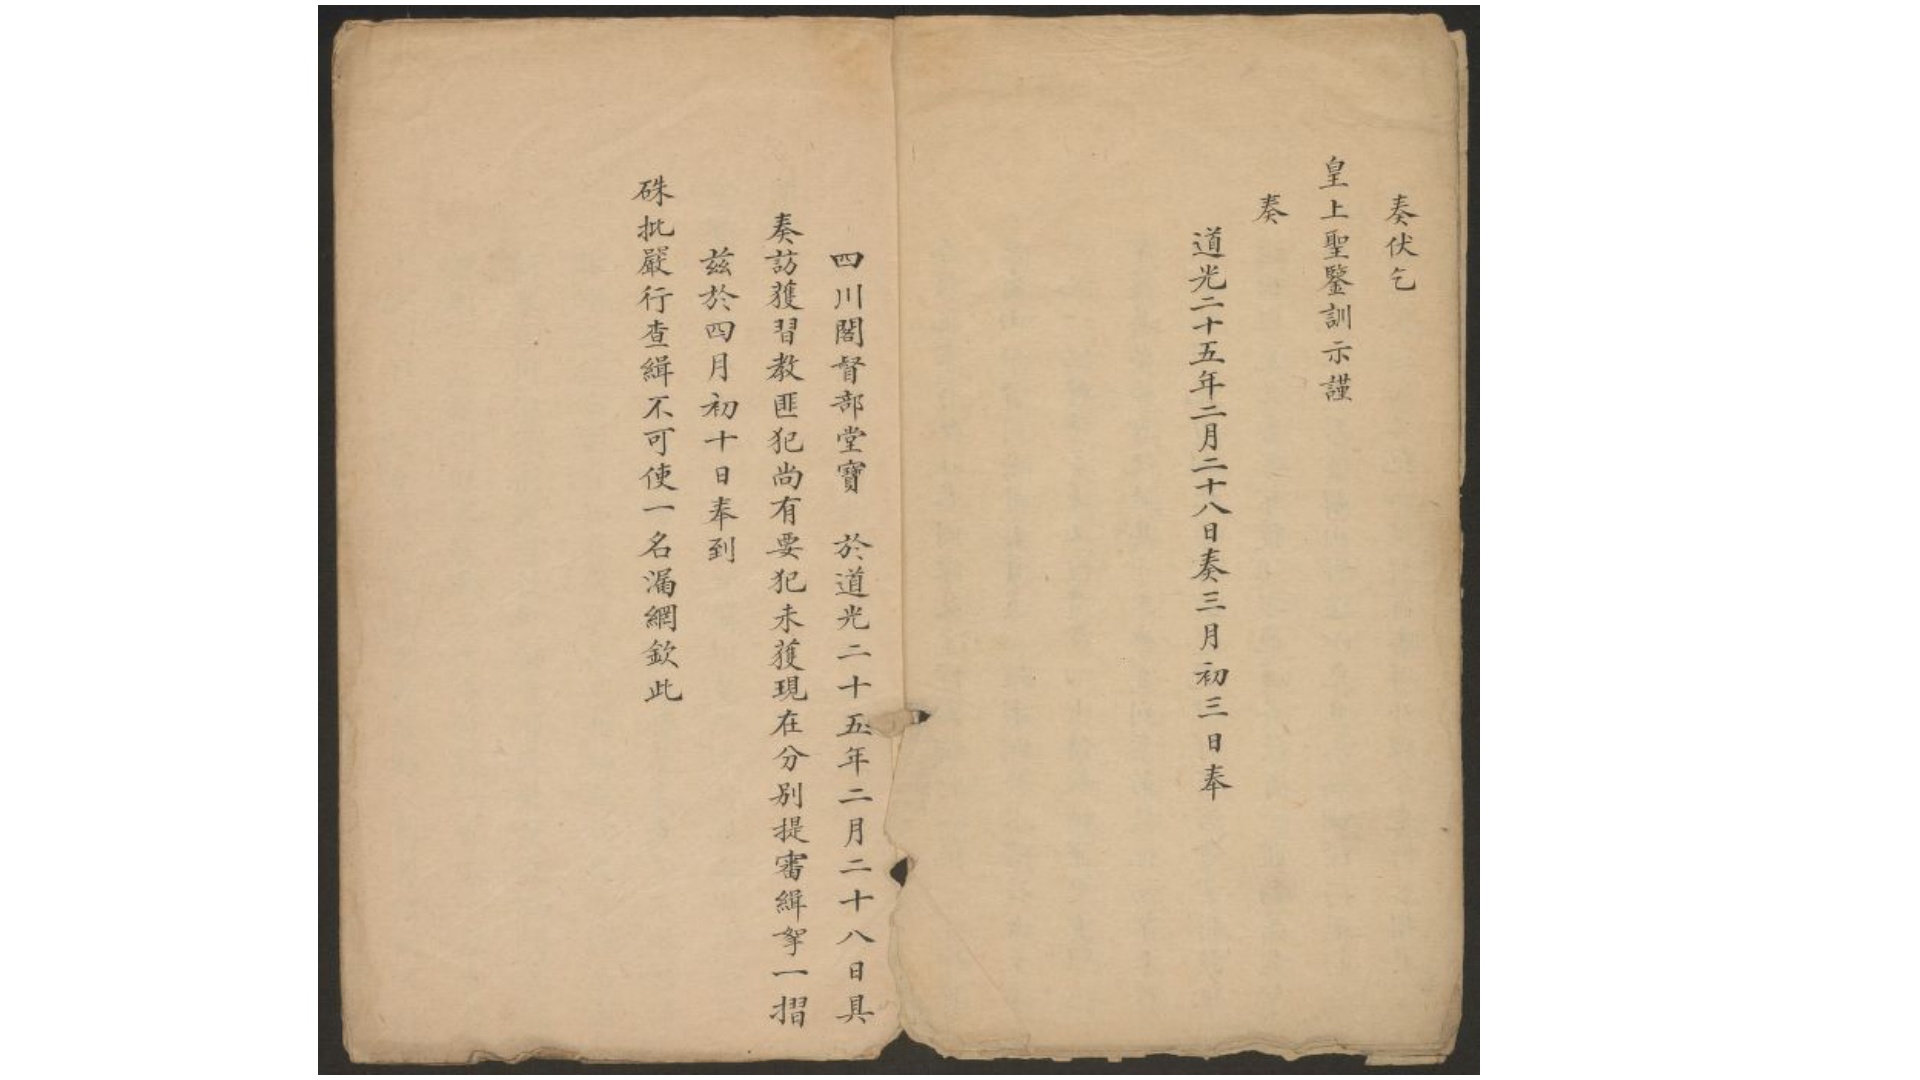 奏伏乞
皇上聖鑒訓示謹
奏
道光二十五年二月二十八日奏三月初三日奉
四川閣督部堂寶 於道光二十五年二月二十八日具
奏訪獲習教匪犯尚有要犯未獲現在分別提審緝拏一摺
茲於四月初十日奉到
硃批嚴行查緝不可使一名漏網欽此